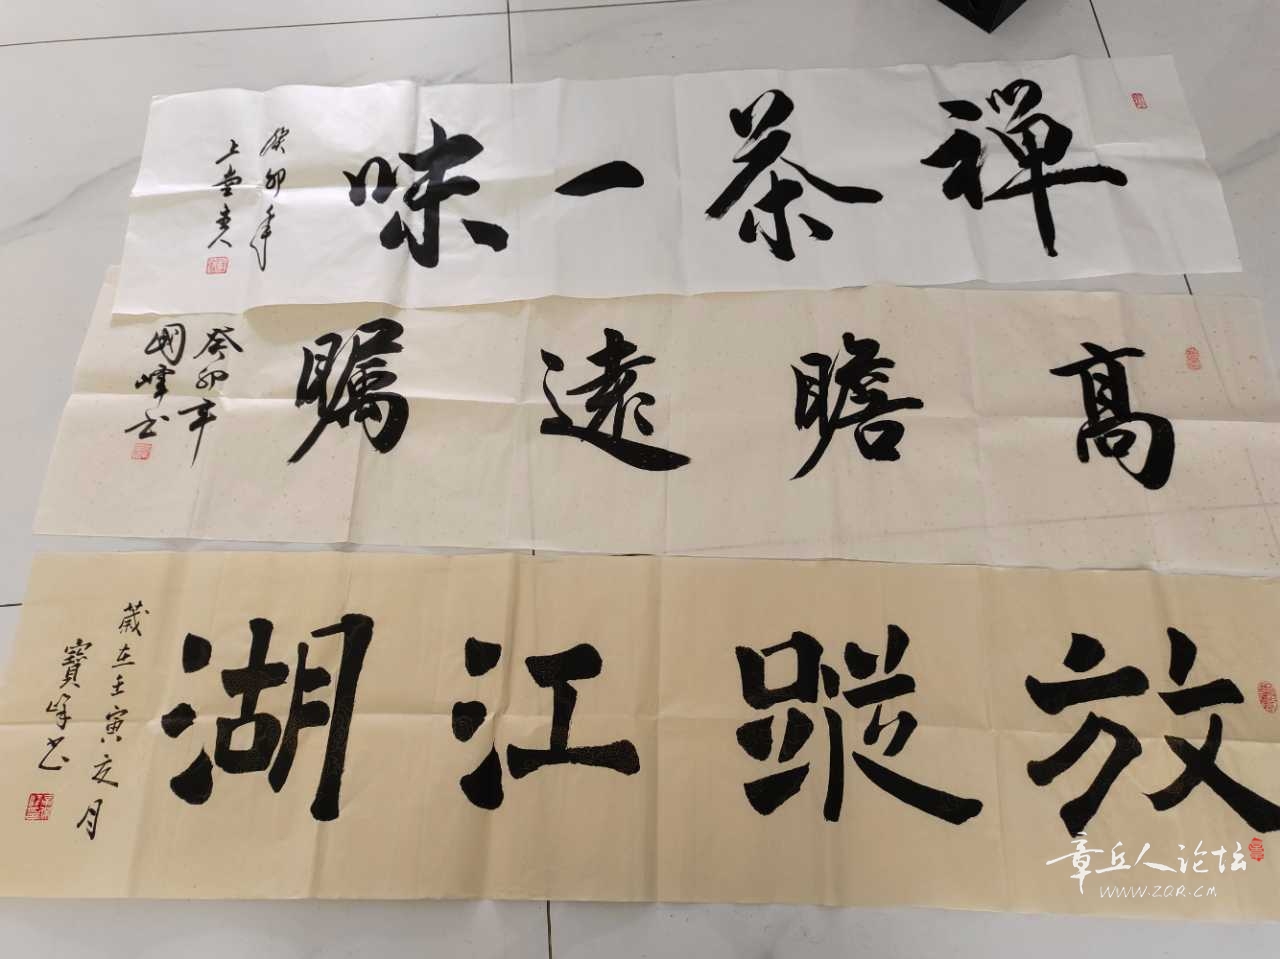 禪茶一味
癸卯年
高瞻遠矚
癸卯年
國峰书
放蹤江湖
歲在壬寅之月
寶峰书
章丘人论坛
WWW.ZQR.CM